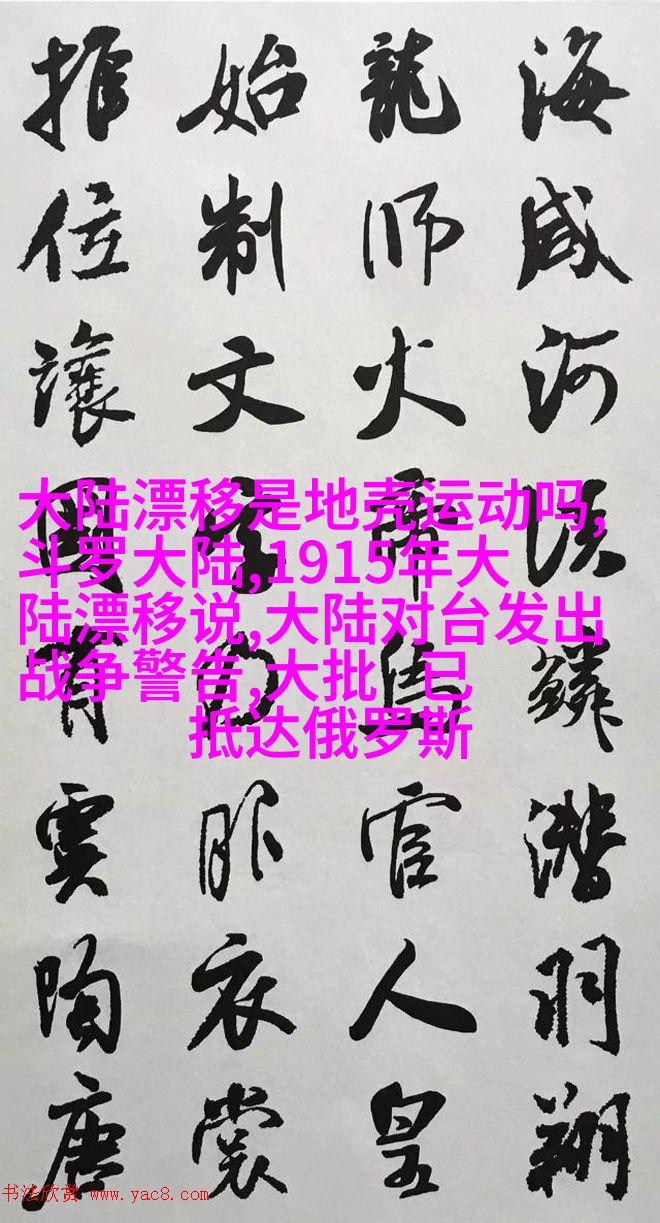 海咸河淡鱗潛羽翔
龍师火帝鳥官人皇
始制文字乃服衣裳
推位讓國有虞陶唐
大陆漂移是地壳运动吗,
斗罗大陆,1915年大
陆漂移说,大陆对台发出
战争警告,大批 已
抵达俄罗斯
书法欣赏 www.yac8.com